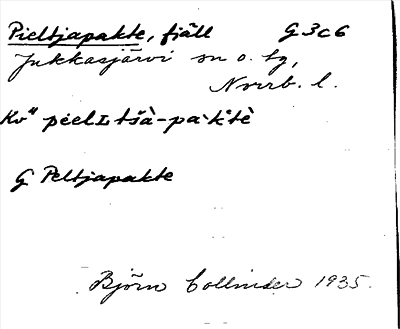 Pieltjapakte, fjäll G3c6
Jukkasjärvi sn o. tg,
Norrb. l.
Kv" péelLtšà-pa·k·tè
G Peltjapakte
Björn Collinder 1935.